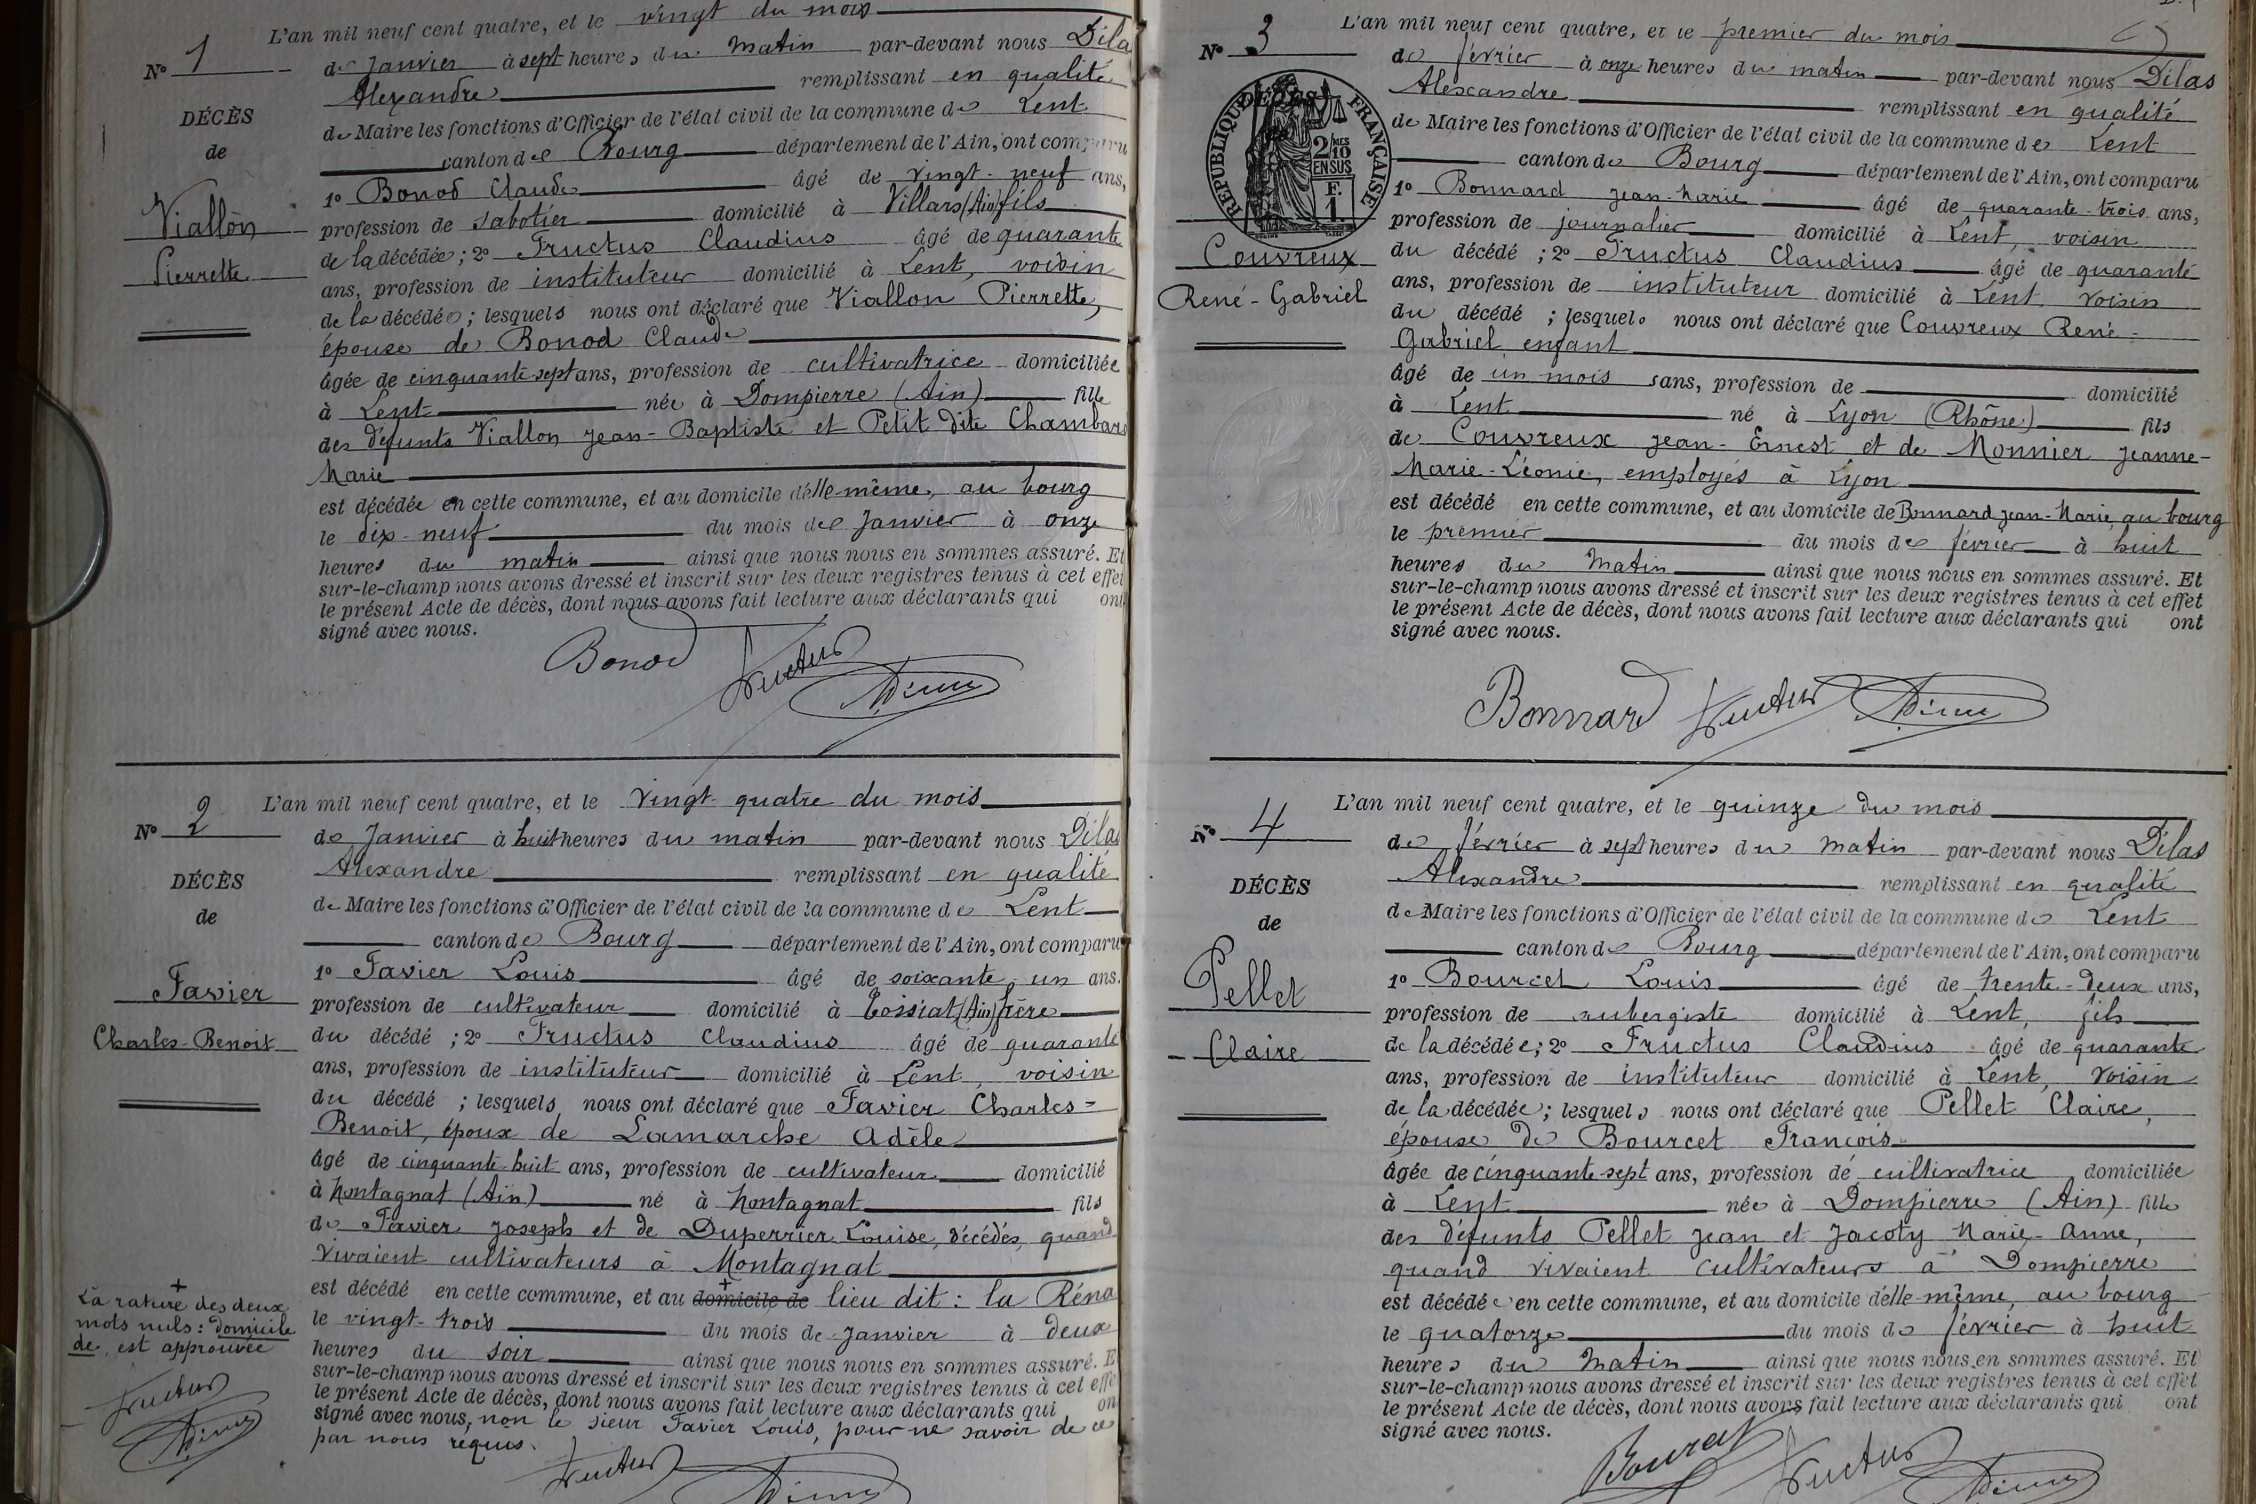 L'an mil neuf cent quatre, et le vingt du mois
No 1
de Janvier à sept heures du matin par-devant nous Dila
Alexandre remplissant en qualité
DÉCÈS
de Maire les fonctions d'Officier de l'état civil de la commune de Lent
de
canton de Bourg département de l'Ain, ont comparu
1o Bonod Claude âgé de vingt-neuf ans,
Viallon
profession de sabotier domicilié à Villars (Ain) fils
de la décédée; 2o Fructus Claudius âgé de quarante
Pierrette
ans, profession de instituteur domicilié à Lent, voisin
de la décédée; lesquels nous ont déclaré que Viallon Pierrette,
épouse de Bonod Claude
âgée de cinquante-sept ans, profession de cultivatrice domiciliée
à Lent née à Dompierre (Ain) fille
des défunts Viallon Jean-Baptiste et Petit dite Chambard
Marie
est décédée en cette commune, et au domicile d'elle-même, au bourg
le dix-neuf du mois de Janvier à onze
heures du matin ainsi que nous nous en sommes assuré. Et
sur-le-champ nous avons dressé et inscrit sur les deux registres tenus à cet effet
le présent Acte de décès, dont nous avons fait lecture aux déclarants qui ont
signé avec nous.
Bonod Fructus
L'an mil neuf cent quatre, et le vingt-quatre du mois
No 2
de Janvier à huit heures du matin par-devant nous Dilas
Alexandre remplissant en qualité
DÉCÈS
de Maire les fonctions d'Officier de l'état civil de la commune de Lent
de
canton de Bourg département de l'Ain, ont comparu
1o Favier Louis âgé de soixante-un ans.
Favier
profession de cultivateur domicilié à Tossiat (Ain) frère
Charles-Benoit
du décédé; 2o Fructus Claudius âgé de quarante
ans, profession de instituteur domicilié à Lent, voisin
du décédé; lesquels nous ont déclaré que Favier Charles-
Benoit, époux de Lamarche Adèle
âgé de cinquante-huit ans, profession de cultivateur domicilié
à Montagnat (Ain) né à Montagnat fils
de Favier Joseph et de Duperrier Louise, décédés, quand
vivaient cultivateurs à Montagnat
est décédé en cette commune, et au domicile de lieu dit: la Réna
le vingt-trois du mois de Janvier à deux
heures du soir ainsi que nous nous en sommes assuré. E
sur-le-champ nous avons dressé et inscrit sur les deux registres tenus à cet effe
le présent Acte de décès, dont nous avons fait lecture aux déclarants qui on
signé avec nous, non le sieur Favier Louis, pour ne savoir de ce
par nous requis.
La rature des deux
mots nuls: domicile
de, est approuvée
Fructus
Fructus
L'an mil neuf cent quatre, et le premier du mois
No 3
de février à onze heures du matin par-devant nous Dilas
Alexandre remplissant en qualité
RÉPUBLIQUE FRANÇAISE
2/10 MES EN SUS
F. 1.
de Maire les fonctions d'Officier de l'état civil de la commune de Lent
canton de Bourg département de l'Ain, ont comparu
1o Bonnard Jean-Marie âgé de quarante-trois ans,
profession de journalier domicilié à Lent, voisin
Couvreux
du décédé; 2o Fructus Claudius âgé de quarante
René-Gabriel
ans, profession de instituteur domicilié à Lent, voisin
du décédé; lesquels nous ont déclaré que Couvreux René-
Gabriel, enfant
âgé de un mois sans, profession de domicilié
à Lent né à Lyon (Rhône) fils
de Couvreux Jean-Ernest et de Monnier Jeanne-
Marie-Léonie, employés à Lyon
est décédé en cette commune, et au domicile de Bonnard Jean-Marie, au bourg
le premier du mois de février à huit
heures du matin ainsi que nous nous en sommes assuré. Et
sur-le-champ nous avons dressé et inscrit sur les deux registres tenus à cet effet
le présent Acte de décès, dont nous avons fait lecture aux déclarants qui ont
signé avec nous.
Bonnard Fructus
L'an mil neuf cent quatre, et le quinze du mois
No 4
de février à sept heures du matin par-devant nous Dilas
Alexandre remplissant en qualité
DÉCÈS
de Maire les fonctions d'Officier de l'état civil de la commune de Lent
de
canton de Bourg département de l'Ain, ont comparu
1o Bourcet Louis âgé de trente-deux ans,
Pellet
profession de aubergiste domicilié à Lent, fils
Claire
de la décédée; 2o Fructus Claudius âgé de quarante
ans, profession de instituteur domicilié à Lent, voisin
de la décédée; lesquels nous ont déclaré que Pellet Claire,
épouse de Bourcet François
âgée de cinquante-sept ans, profession de cultivatrice domiciliée
à Lent née à Dompierre (Ain) fille
des défunts Pellet Jean et Jacoty Marie-Anne,
quand vivaient cultivateurs à Dompierre
est décédée en cette commune, et au domicile d'elle-même, au bourg
le quatorze du mois de février à huit
heures du matin ainsi que nous nous en sommes assuré. Et
sur-le-champ nous avons dressé et inscrit sur les deux registres tenus à cet effet
le présent Acte de décès, dont nous avons fait lecture aux déclarants qui ont
signé avec nous.
Bourcet Fructus